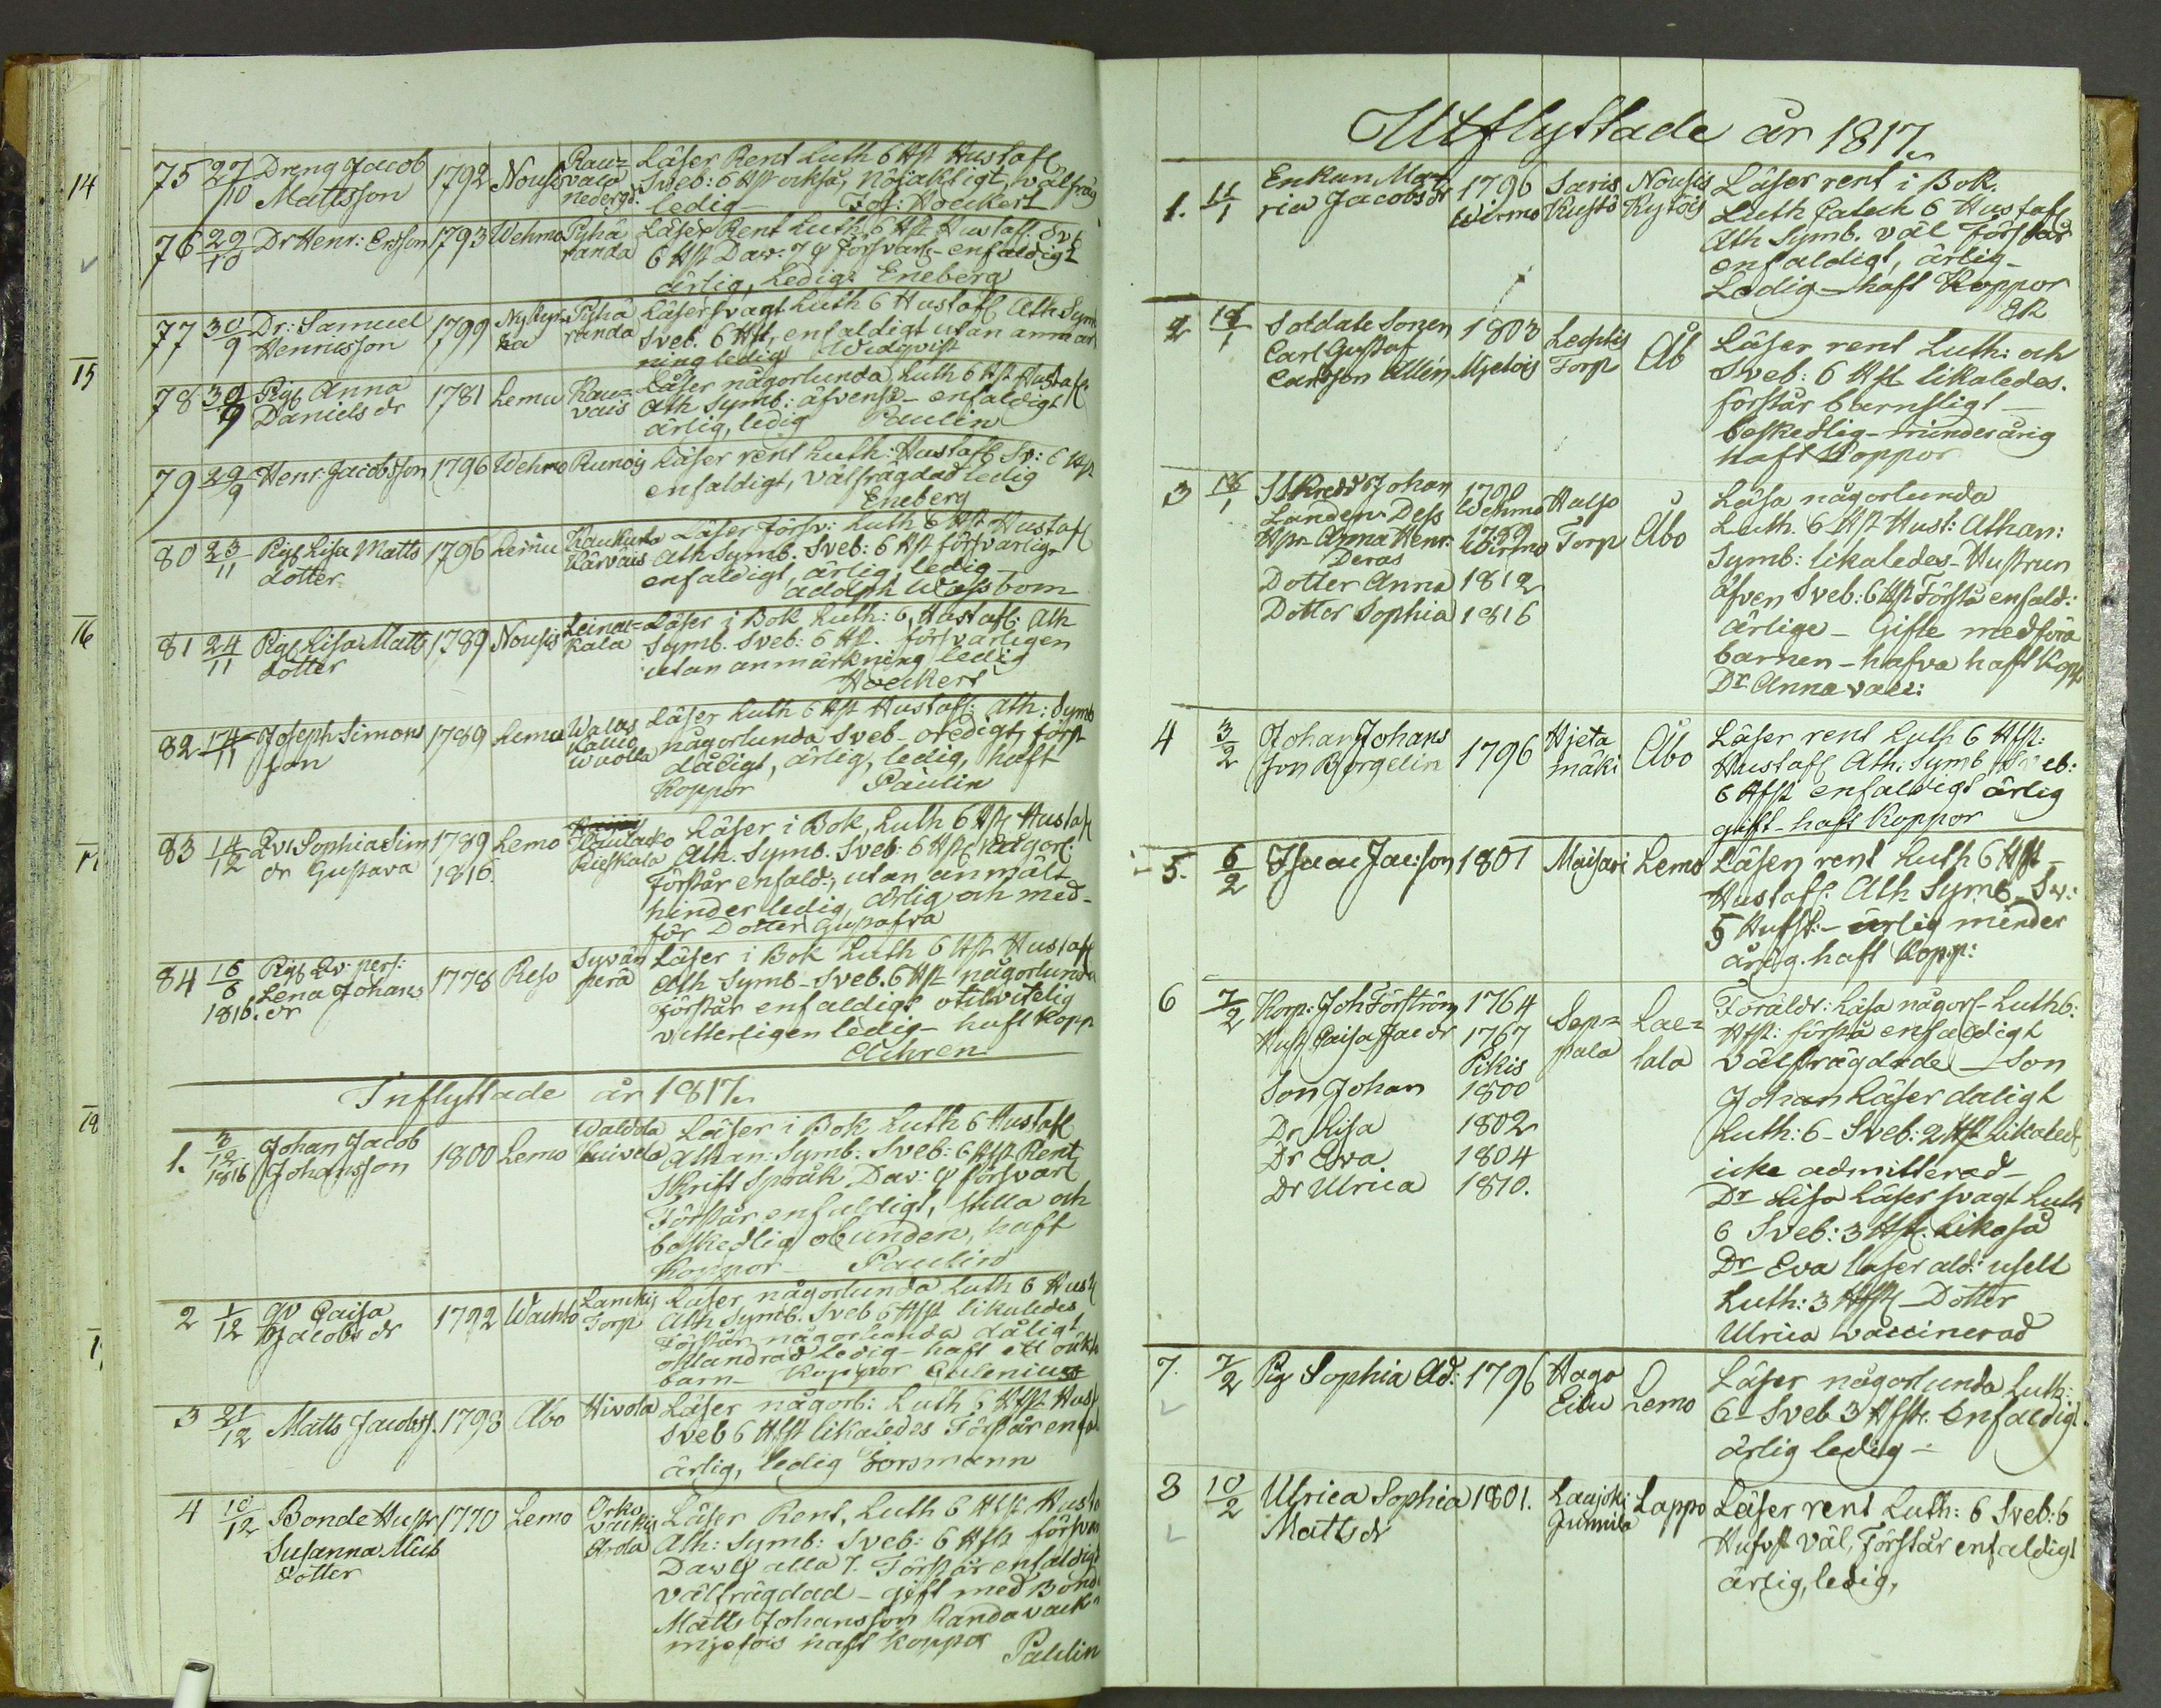 14
15
16
17
18
75 27/10 Dreng Jacob Mattsson 1792 Nousis Läser Rent Luth 6 Hst Hustafl
Sveb: 6 Hst också, nöjaktigt, välfräg
ledig Jos: Hoeckert
76 29/10 Dr Henr: Ersson 1793 Wehmo Pyhä randa Läser Rent Luth 6 Hst Hustafl Sv 6
6 Hst Dav: 7 försvarl enfaldigt
ärlig, Ledig. Eneberg
77 30/9 Dr: Samuel Henricsson 1799 Pyhä randa Läser svagt Luth 6 Hustafl Ath Symb
Sveb. 6 Hst, enfaldigt utan anmärk
ning ledig Widqvist
78 30/9 Pig Anna Daniels dr 1781 Lemu Kau= vais Läser någorlunda Luth 6 Hst Hustafl
Ath Symb: äfvenså enfaldigt
ärlig, ledig Paulin
79 29/9 Henr: Jacobsson 1796 Wehmo Runois Läser rent Luth: Hustafl Sv: 6 Hst
enfaldigt, välfrägdad ledig
Eneberg
80 23/11 Pig Lisa Matts dotter 1796 Lemu Läser försv: Luth 6 Hst Hustafl
Ath Symb. Sveb: 6 Hst försvarlig
enfaldigt, ärlig, ledig
Adolph Wassbom
81 24/11 Pig Lisa Matts dotter 1789 Nousis Leina= kala Läser i Bok Luth: 6, Hustafl: Ath
Symb. Sveb: 6 Hst. försvarligen
utan anmärkning ledig
Hoeckert
82 17/11 Joseph Simons son 1789 Lemu Läser Luth 6 Hst Hustafl: Ath: Symb
någorlunda Sveb oredigt, först
dåligt, ärlig, ledig, haft
Koppor Paulin
83 14/12 Qv: Sophia Sim dr Gustava 1789 1816. Lemo Läser i Bok, Luth 6 Hst Hustafl
Ath. Symb. Sveb: 6 Hst någorl:
förstår enfald:, utan anmält
hinder ledig, ärlig och med-
för Dotter Gustafva
84 16/6 1816. Pig Qv: pers: Lena Johans dr 1778 Reso Syvän perä Läser i Bok Luth 6 Hst Hustafl
Ath Symb Sveb. 6 Hst någorlunda
förstår enfaldigt otilvitelig
vitterligen ledig haft Kopp
Inflyttade år 1817.
1. 3/12 1816 Johan Jacob Johansson 1800 Lemo Läser i Bok Luth 6 Hustafl
Athan: Symb: Sveb: 6 Hst Rent,
Skrift Språk Dav: försvarl
Förstår enfaldigt, stilla och
beskedlig obunden, haft
Koppor Paulin
2 1/12 Qv Caisa Jacobs dr 1792 Torp Läser någorlunda Luth 6 Hust
Ath Symb. Sveb 6 Hst likaledes
Förstår någorlunda dåligt,
ledig haft ett oäkta
barn Koppor
3 21/12 Matts Jacobss. 1798 Åbo Hivola Läser någorl: Luth 6 Hst Hust
Sveb 6 Hst likaledes Förstår enfa
ärlig, ledig Forsmann
4 10/12 Bonde Hustr Susanna Mich dotter 1770 Lemo Läser Rent, Luth 6 Hst Husta
Ath: Symb: Sveb: 6 Hst försvar
Dav alla 7. Förstår enfaldigt
välfrägdad gift med Bonde
Matts Johansson
haft koppor Paulin
Utflyttade år 1817.
1. 11/1 Enkan Ma= ria Jacobs dr 1796 Wirmo Saris Kustö Nousis Kytöis Läser rent i Bok.
Luth Catech 6 Hustafl
Ath Symb. väl Förstår
enfaldigt, ärlig
Ledig haft Koppor
2 Soldate Sonen Carl Gustaf Carlsson Allén 1803 Mjetois Torp Åb Läser rent Luth: och
Sveb: 6 Hst likaledes.
förstår barnsligt
beskedlig minderårig
haft Koppor
3 18/1 Skredd Johan Landen Dess Hstr Anna Henr. 1790 Wehmo 1789 Wirmo Torp Åbo Läsa någorlunda
Deras
Dotter Anna 1812
Dotter Sophia 1816
Luth. 6 Hst Hust: Athan:
Symb: likaledes Hustrun
äfven Sveb: 6 Hst Förstå enfald:
ärlige Gifte medföra
barnen hafva haft Kopp
Dr Anna vacc:
4 3/2 Johan Johans son Borgelin 1796 Hjeta mäki Åbo Läser rent Luth 6 Hst:
Hustafl Ath: Symb Sveb:
6 Hst enfaldigt ärlig
gift haft Koppor
5. 6/2 Isaac Jac:son 1801 Maisari Lemo Läser rent Luth 6 Hst
Hustafl: Ath Symb Sv:
5 Hufst: ärlig minder
årig. haft Kopp:
6 7/2 Korp: Joh Förström 1764 Sep= pala Lae= tala Föräldr: Läsa någorl Luth 6:
Hust Caisa Jac dr 1767 Pikis Hst: förstå enfaldigt
välfrägdade Son
Son Johan 1800 Johan Läser dåligt
Dr Lisa 1802 Luth: 6 Sveb: 2 Hst likaled
Dr Eva 1804 icke admitterad
Dr Ulrica 1810. Dr Lisa Läser svagt Luth
6 Sveb: 3 Hst: likaså
Dr Eva läser ald: uselt
Luth: 3 Hst Dotter
Ulrica vaccinerad
7. 7/2 Pig Sophia Ad: 1796 Lemo Läser någorlunda Luth:
6 Sveb 3 Hfst. Enfaldigt
ärlig ledig
8 10/2 Ulrica Sophia Matts dr 1801. Laujoki Junnila Lappo Läser rent Luth: 6 Sveb: 6
Hufvst väl, Förstår enfaldigt
ärlig, ledig,